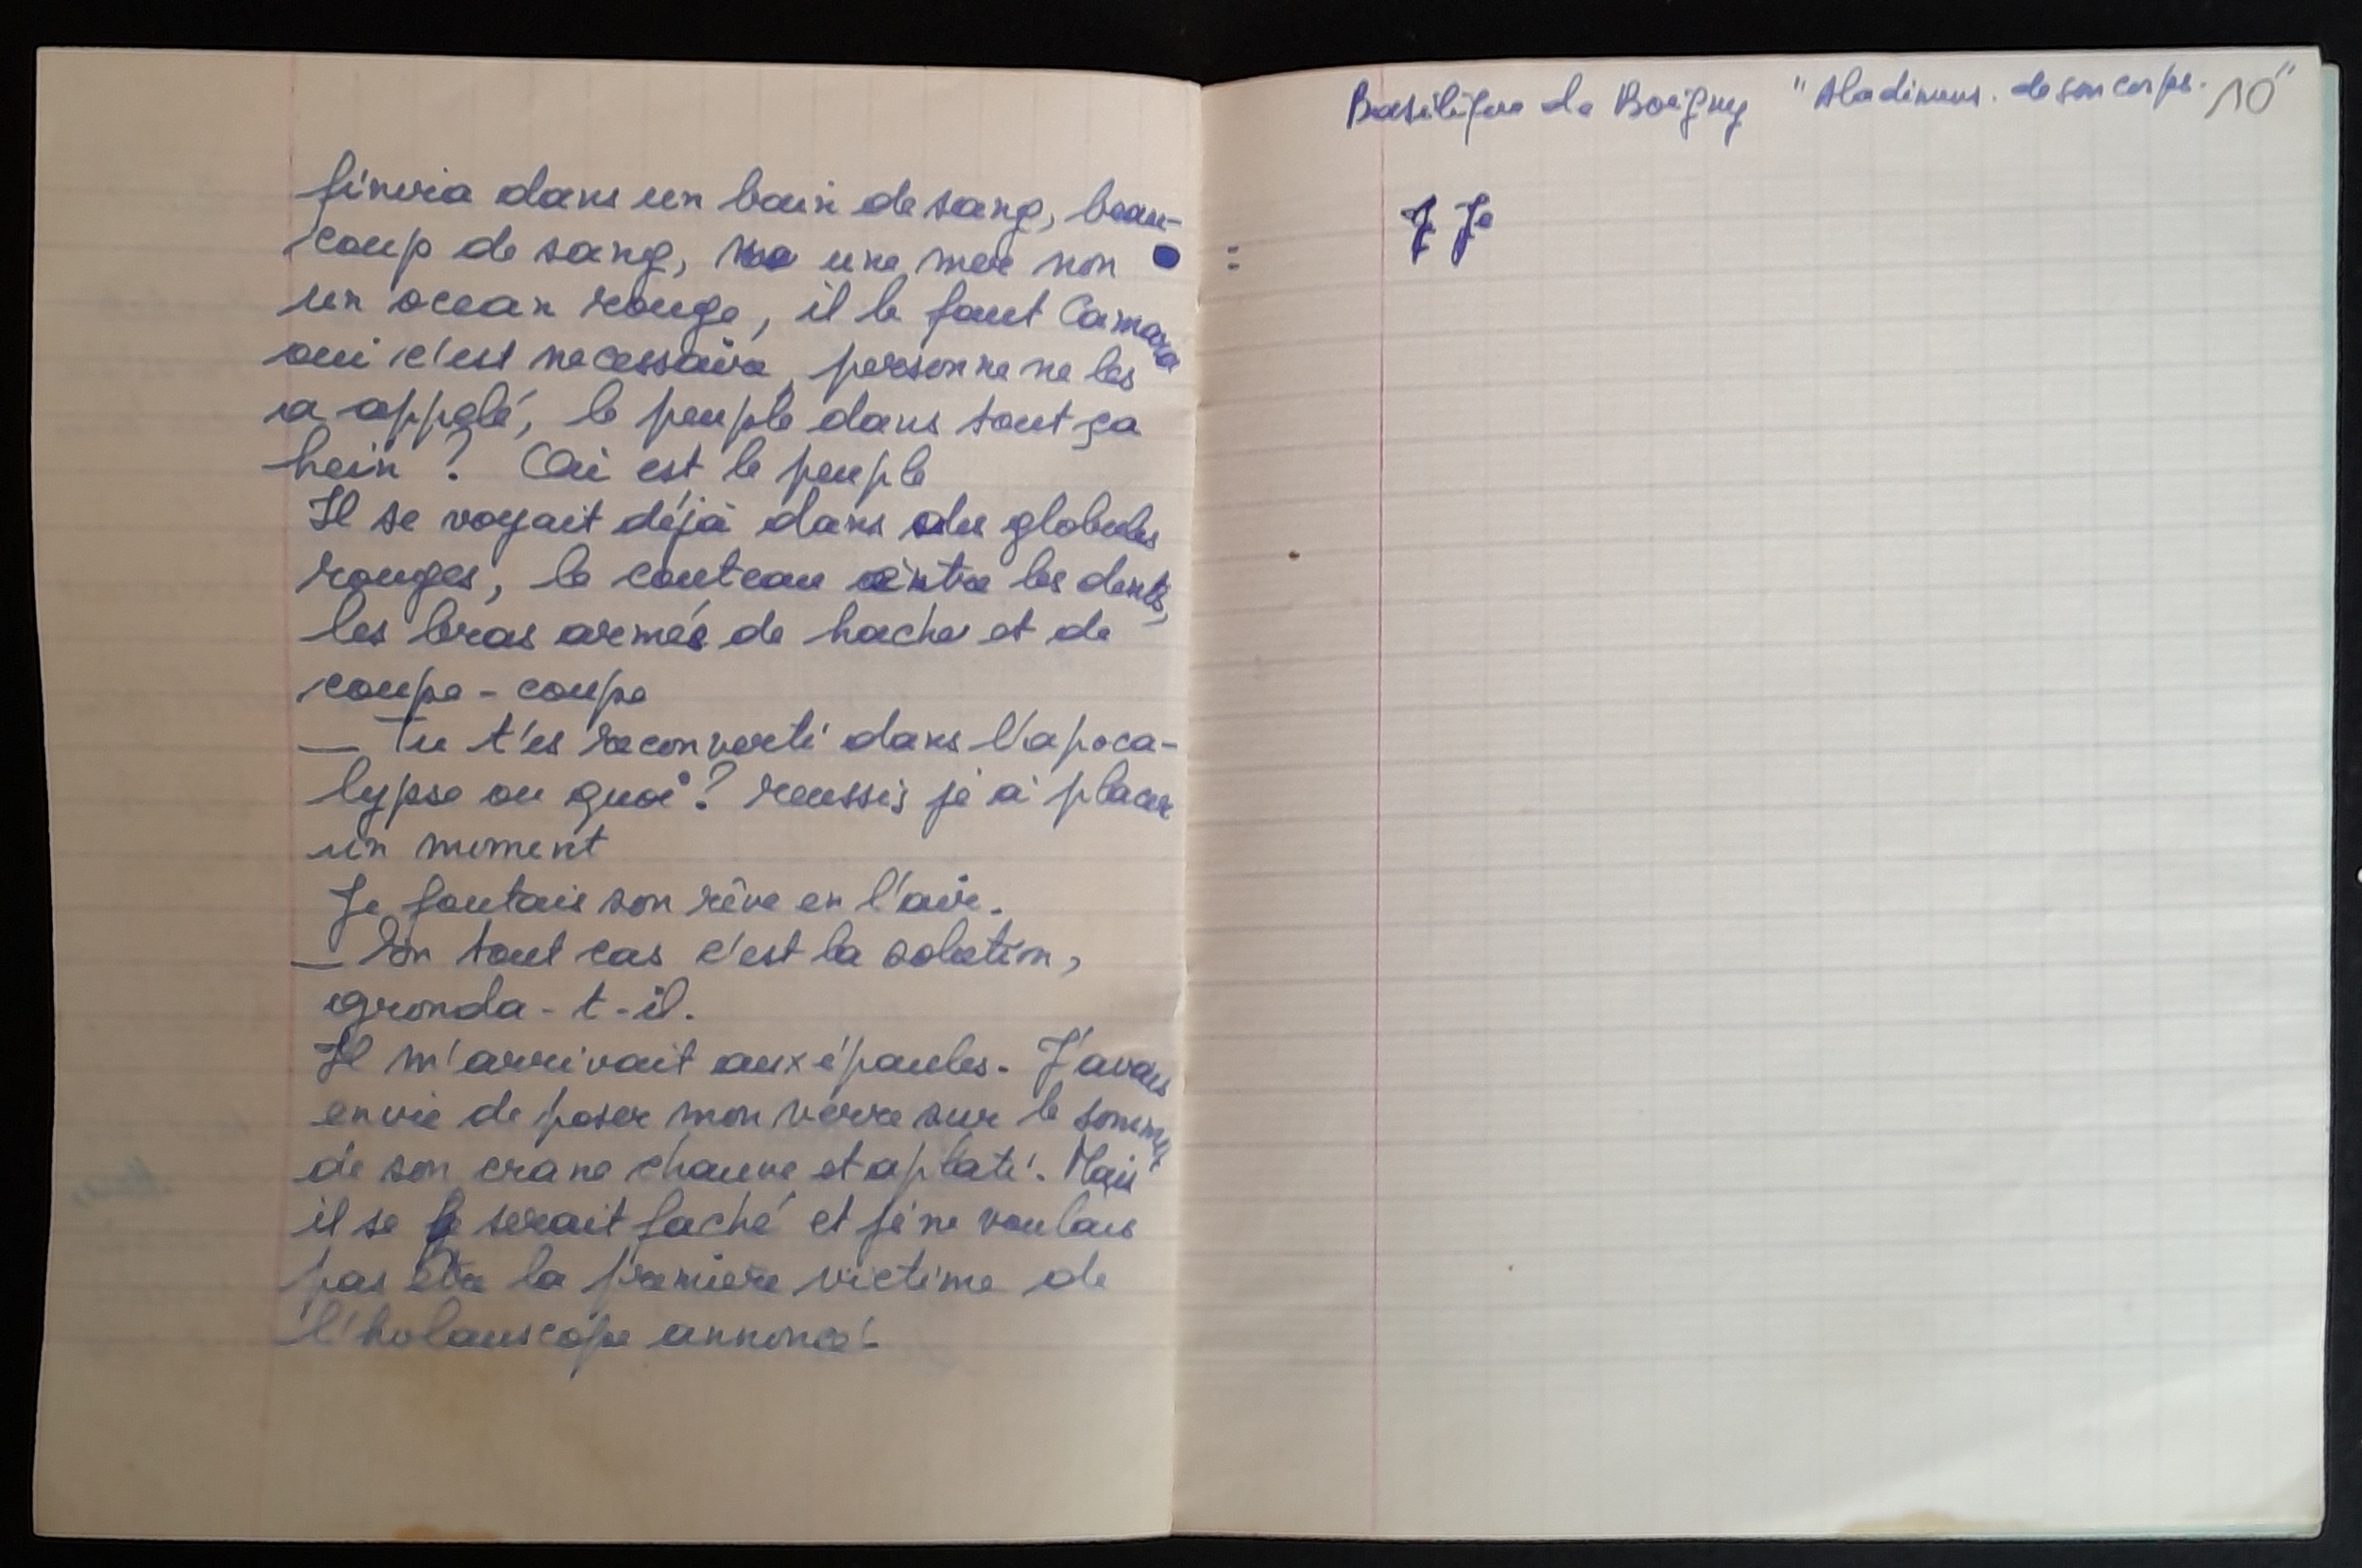 finira dans un bain de sang, beau-
coup de sang, une mer non
un ocean rouge, il le faut Camara
oui c'est necessaire, personne ne les
a applé, le peuple dans tout ça
hein ? Où est le peuple
Il se voyait déjà dans des globules
rouges, le couteau entre les dents,
les bras armés de hache et de
coupe-coupe
— Tu t'es reconverti dans l'apoca-
lypse ou quoi ? reussis je à placer
un moment
Je foutais son rêve en l'air.
— En tout cas c'est la solution,
gronda-t-il.
Il m'arrivait aux épaules. J'avais
envie de poser mon verre sur le sommet
de son crane chauve et aplati. Mais
il se serait faché et je ne voulais
pas être la premiere victime de
l'holauscope annoncé.
Basilique de Boigny " de son corps. 10"
J Je